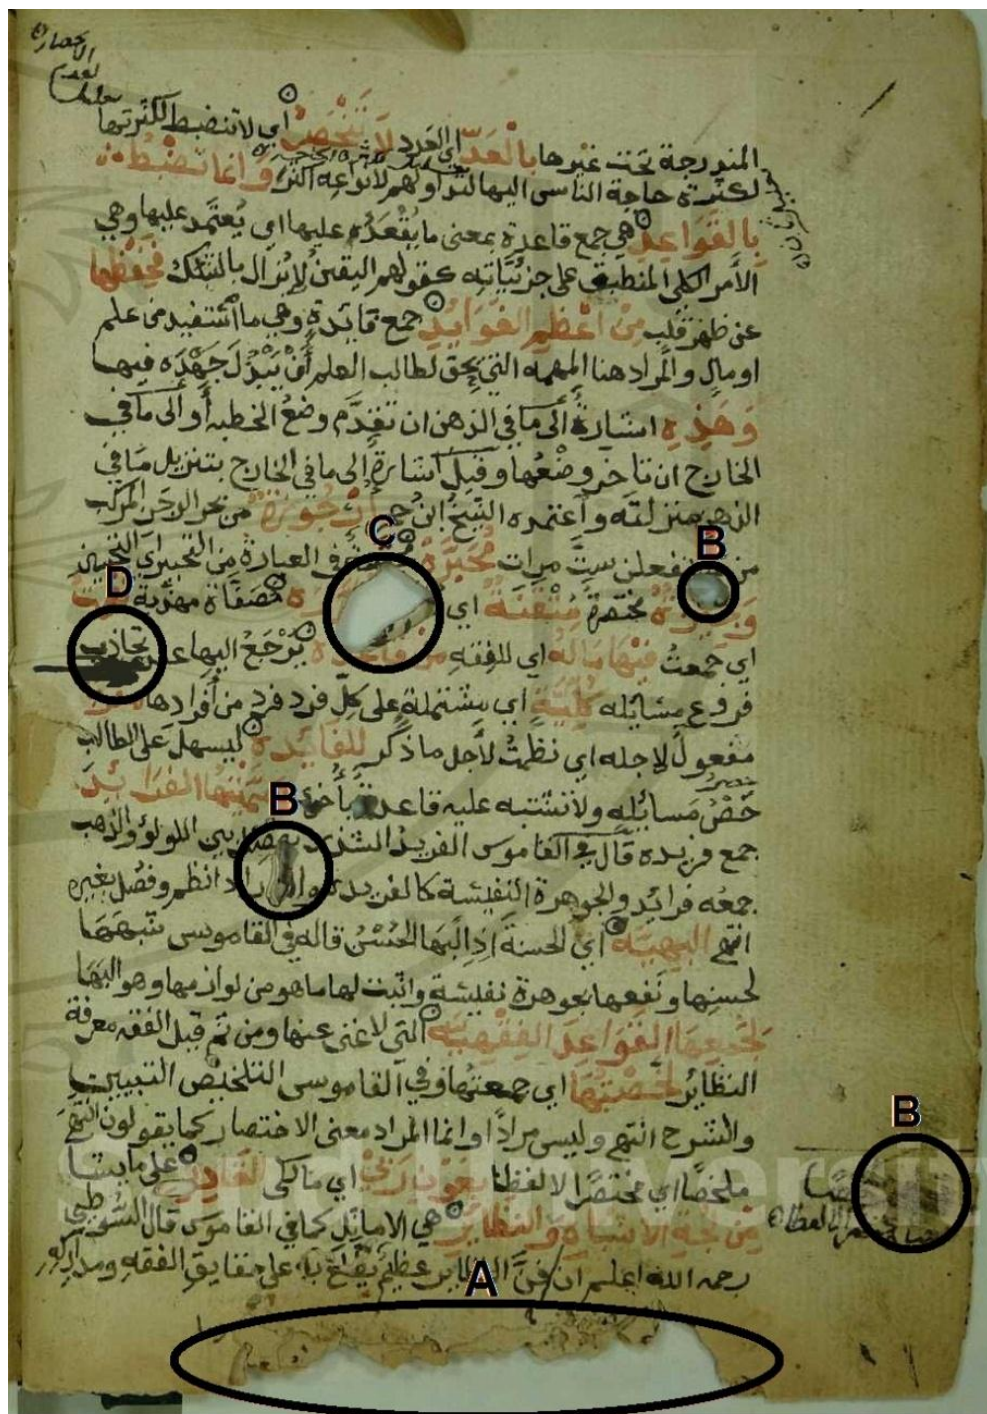 الاحصار
المندرجة تحت غيرها بالعد اي العدد لا تنحصر اي لا تنضبط لكثرتها
لكثرة حاجة الناس اليها لتداولهم لانواعه وانما تضبط
بالقواعد هي جمع قاعدة بمعنى ما يقعد عليها اي يعتمد عليها وهي
الأمر الكلي المنطبق على جزئياته كقولهم اليقين لا يزال بالشك فحفظها
عن ظهر قلب من اعظم الفوايد جمع فائدة وهي ما استفيد من علم
او مال والمراد هنا المهمه التي يحق لطالب العلم أن يبذل جهده فيها
وهذه اشارة إلى ما في الذهن ان تقدم وضع الخطبه أو الى ما في
الخارج ان تاخر وضعها وقيل اشارة إلى ما في الخارج بتنزيل ما في
الذهن منزلته واعتمده الشيخ ابن حجر أرجوزة من بحر الرجز المركب
من مستفعلن ست مرات محبرة في العبارة من التحبير اي التحسين
وجيزة مختصرة متقنة اي مصفاة مهذبة
اي جمعت فيها ماله اي للفقه من قاعدة يرجع اليها عند تجاذب
فروع مسائله كلية اي مشتملة على كل فرد فرد من أفرادها
مفعول لاجله اي نظمت لأجل ما ذكر للفايدة ليسهل على الطالب
حصر
مسائله ولا تشتبه عليه قاعدة بأخرى سميتها الفرائد
جمع فريده قال في القاموس الفريد الشذر يفصل بين اللولو والذهب
جمعه فرائد والجوهرة النفيسة كالفريدة والدر اذا نظم وفصل بغيره
انتهى البهيه اي الحسنة اذ البها الحسن قاله في القاموس شبهها
لحسنها ونفعها بجوهرة نفيسة واثبت لها ما هو من لوازمها وهو البها
لجمعها القواعد الفقهيه التي لا غنى عنها ومن ثم قيل الفقه معرفة
النظائر لخصتها اي جمعتها وفي القاموس التلخيص التبيين
والشرح انتهى وليس مرادًا وانما المراد معنى الاختصار كما يقولون انتهى
ملخصًا اي مختصرًا لا لفظا بعون ربي اي مالكي القادر على ما يشا
من لجة الاشباه والنظاير هي الاماثل كما في القاموس قال السيوطي
رحمه الله اعلم ان فن النظاير عظيم به يطلع على حقايق الفقه ومداركه
A
B
B
B
C
D